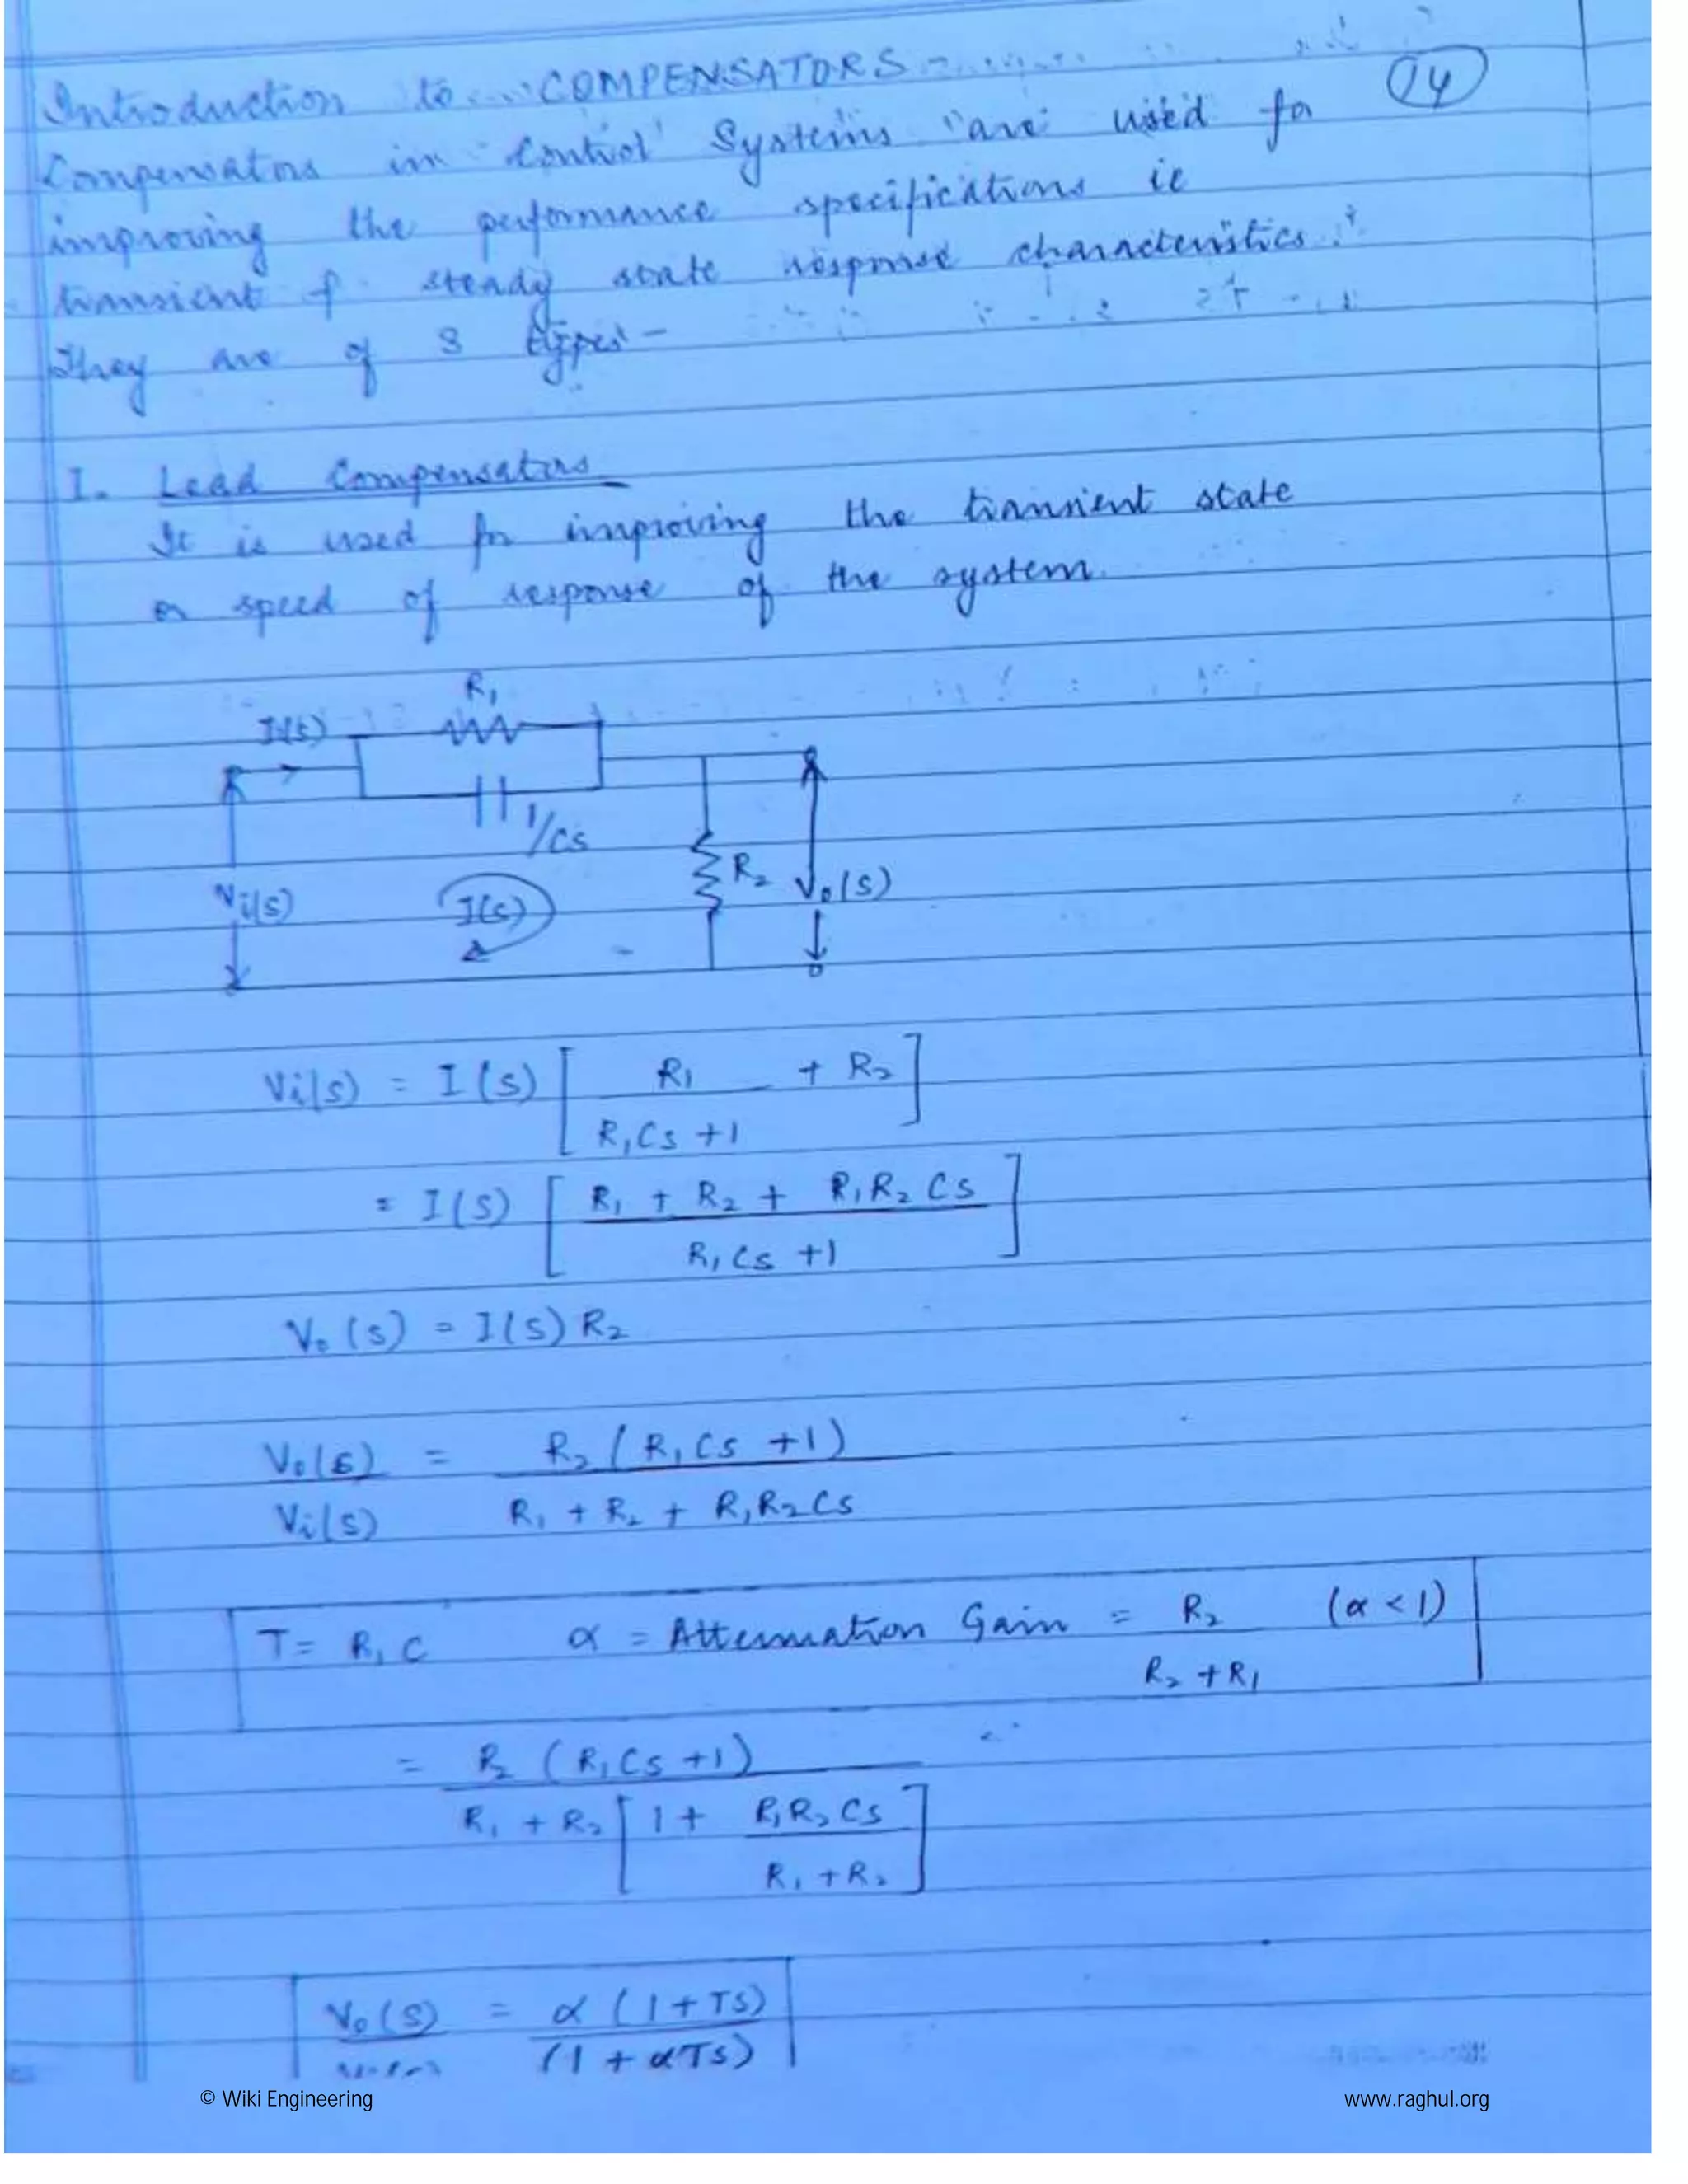 Introduction to COMPENSATORS
14
Compensators in Control Systems are used for
improving the performance specifications ie
transient & steady state response characteristics.
They are of 3 types -
I. Lead Compensators
It is used for improving the transient state
or speed of response of the system.
R1
I(s)
1/Cs
R2
Vo(s)
Vi(s)
I(s)
Vi(s) = I(s) [ R1 + R2 ]
R1Cs + 1
= I(s) [ R1 + R2 + R1R2Cs ]
R1Cs + 1
Vo(s) = I(s) R2
Vo(s) = R2 (R1Cs + 1)
Vi(s) R1 + R2 + R1R2Cs
T = R1C α = Attenuation Gain = R2 (α < 1)
R2 + R1
= R2 (R1Cs + 1)
R1 + R2 [ 1 + R1R2Cs ]
R1 + R2
Vo(s) = α (1 + Ts)
(1 + αTs)
© Wiki Engineering
www.raghul.org